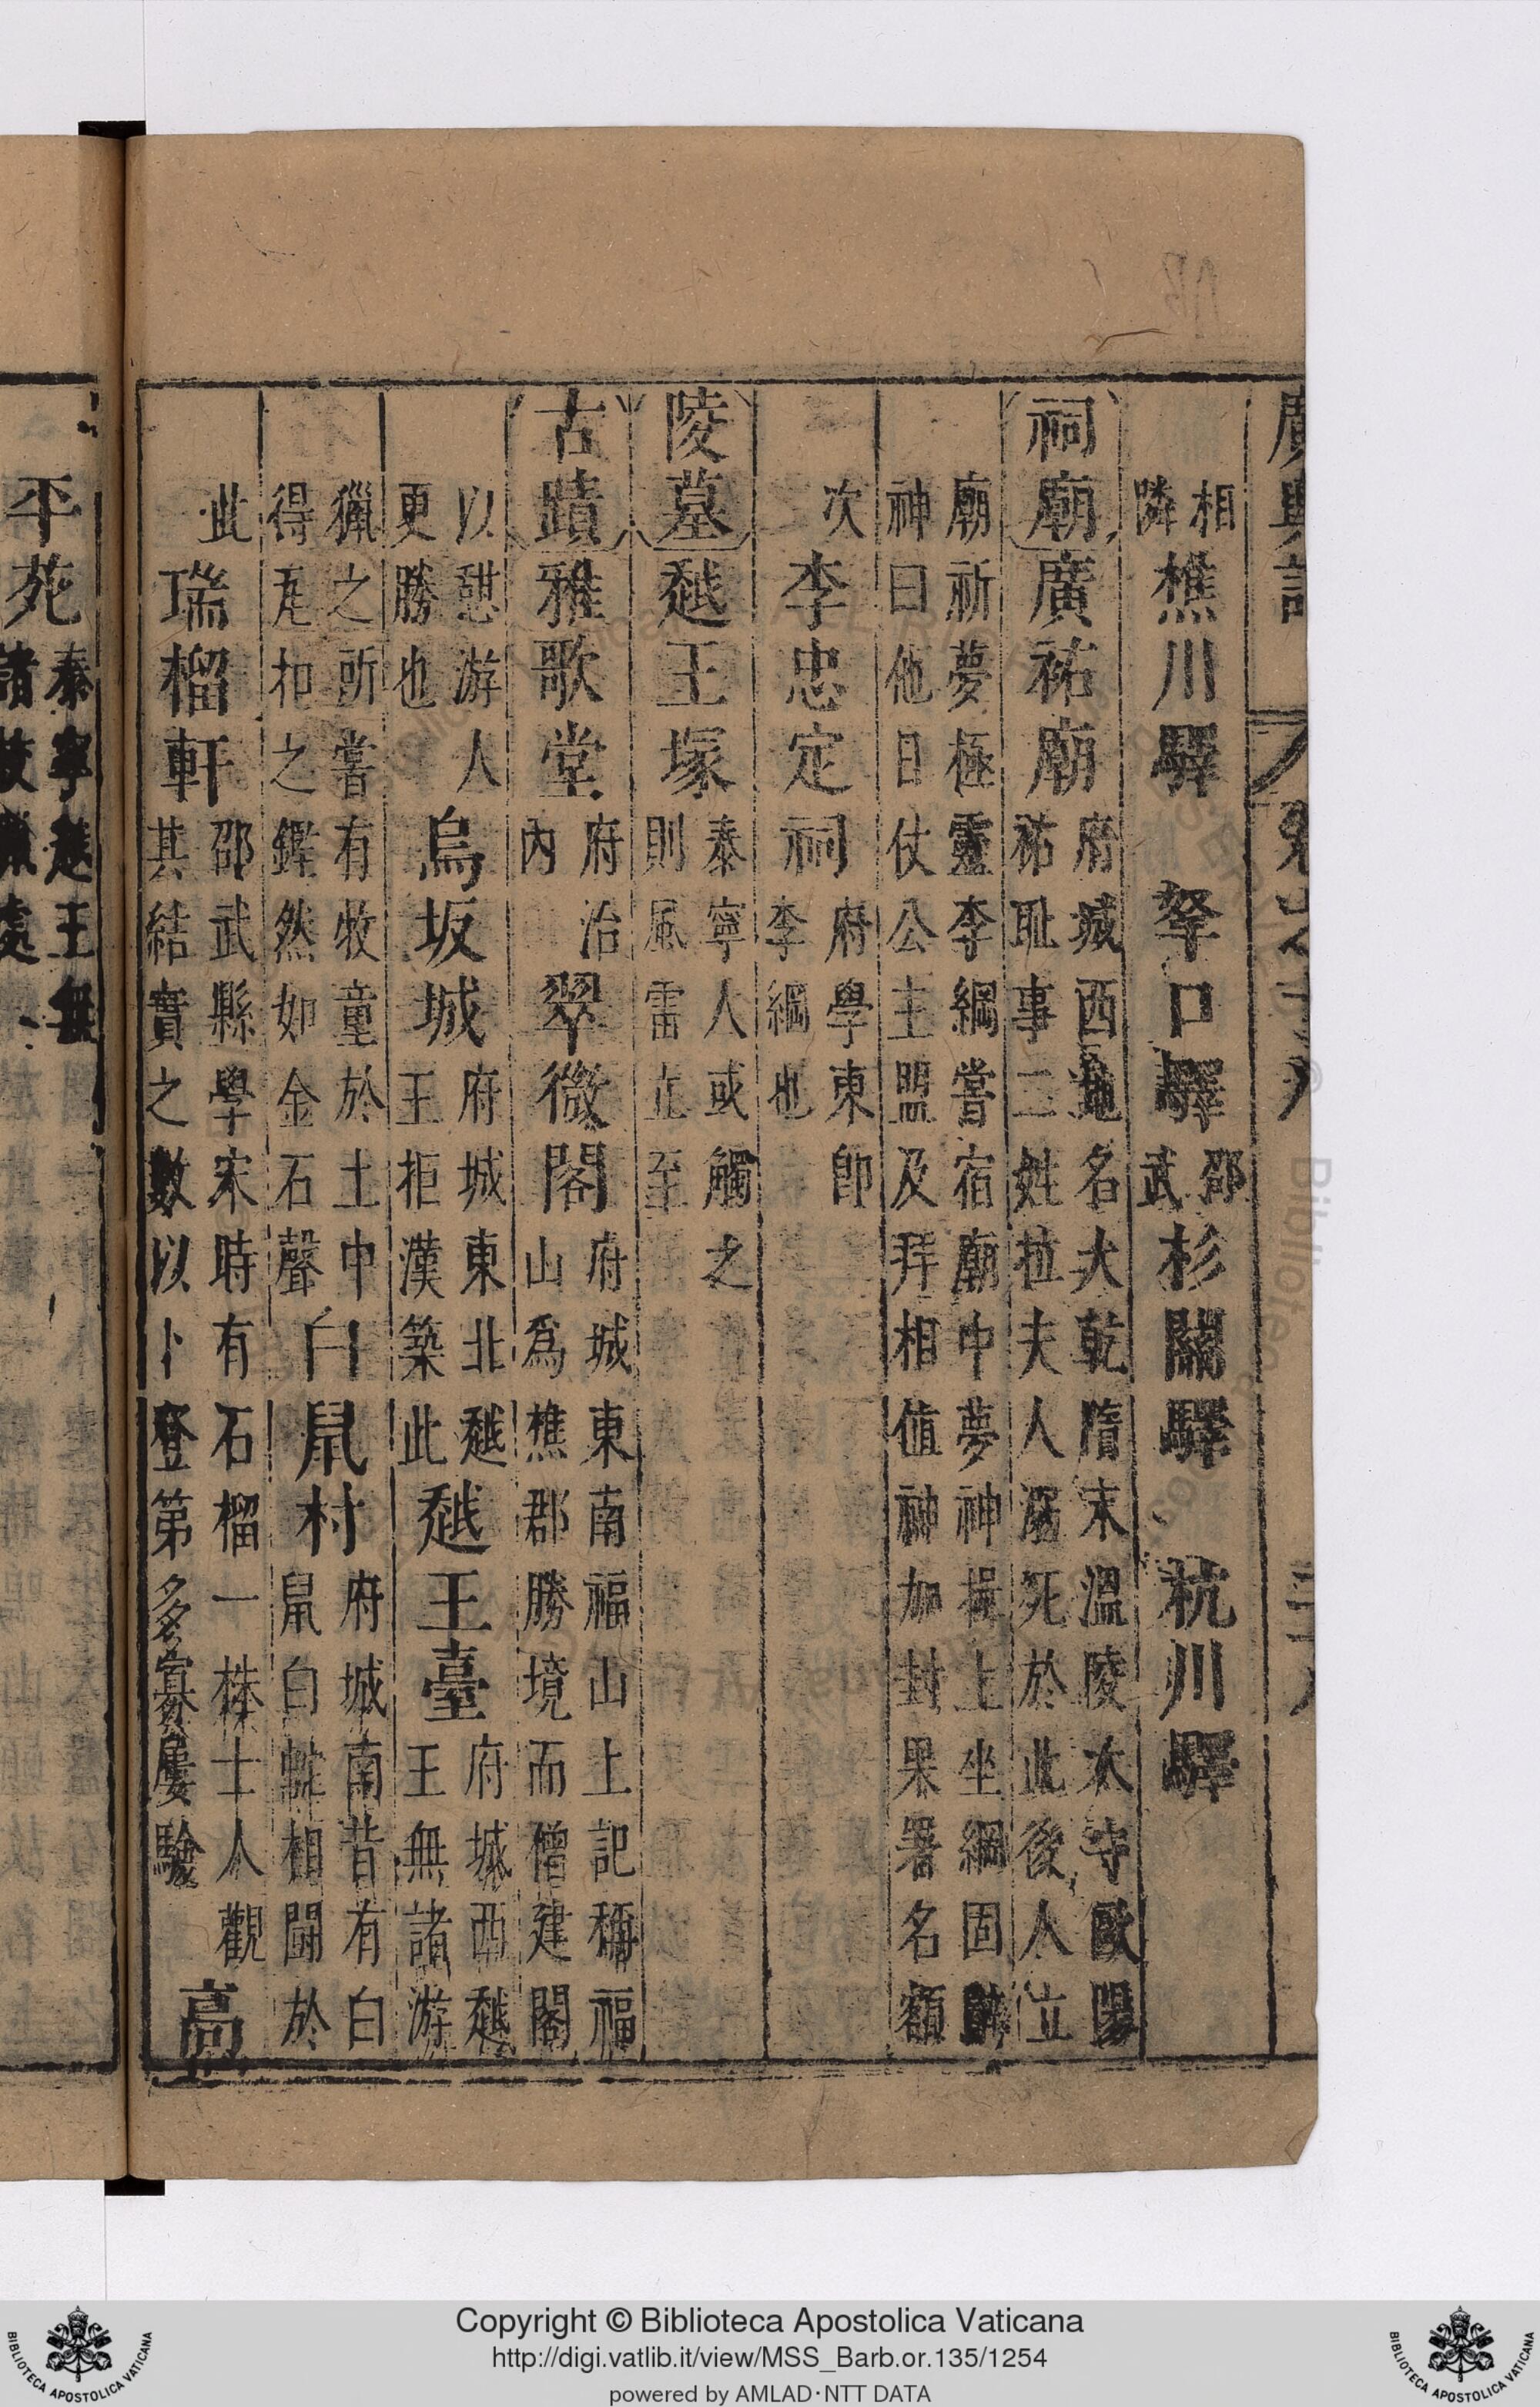 廣輿記
相隣樵川驛 拏口驛邵武杉關驛 杭川驛
祠廟廣祐廟府城西龜名大乾隋末溫陵太守歐陽祐恥事二姓拉夫人溺死於此後人立
廟祈夢極靈李綱嘗宿廟中夢神揖上坐綱固辭神曰他日仗公主盟及拜相值神加封果署名額
次李忠定祠府學東卽李綱也
陵墓越王塚泰寧人或觸之則風雷立至
古蹟雅歌堂府治內翠微閣府城東南福山上記稱福山爲樵郡勝境而僧建閣
以憩游人更勝也烏坂城府城東北越王拒漢築此越王臺府城西越王無諸游
獵之所嘗有牧童於土中得瓦扣之鏗然如金石聲白鼠村府城南昔有白鼠白蛇相鬭於
此瑞榴軒邵武縣學宋時有石榴一株士人觀其結實之數以卜登第多寡屢驗高
平苑泰寧越王無諸校獵處
Copyright © Biblioteca Apostolica Vaticana
http://digi.vatlib.it/view/MSS_Barb.or.135/1254
powered by AMLAD·NTT DATA
BIBLIOTECA APOSTOLICA VATICANA
BIBLIOTECA APOSTOLICA VATICANA